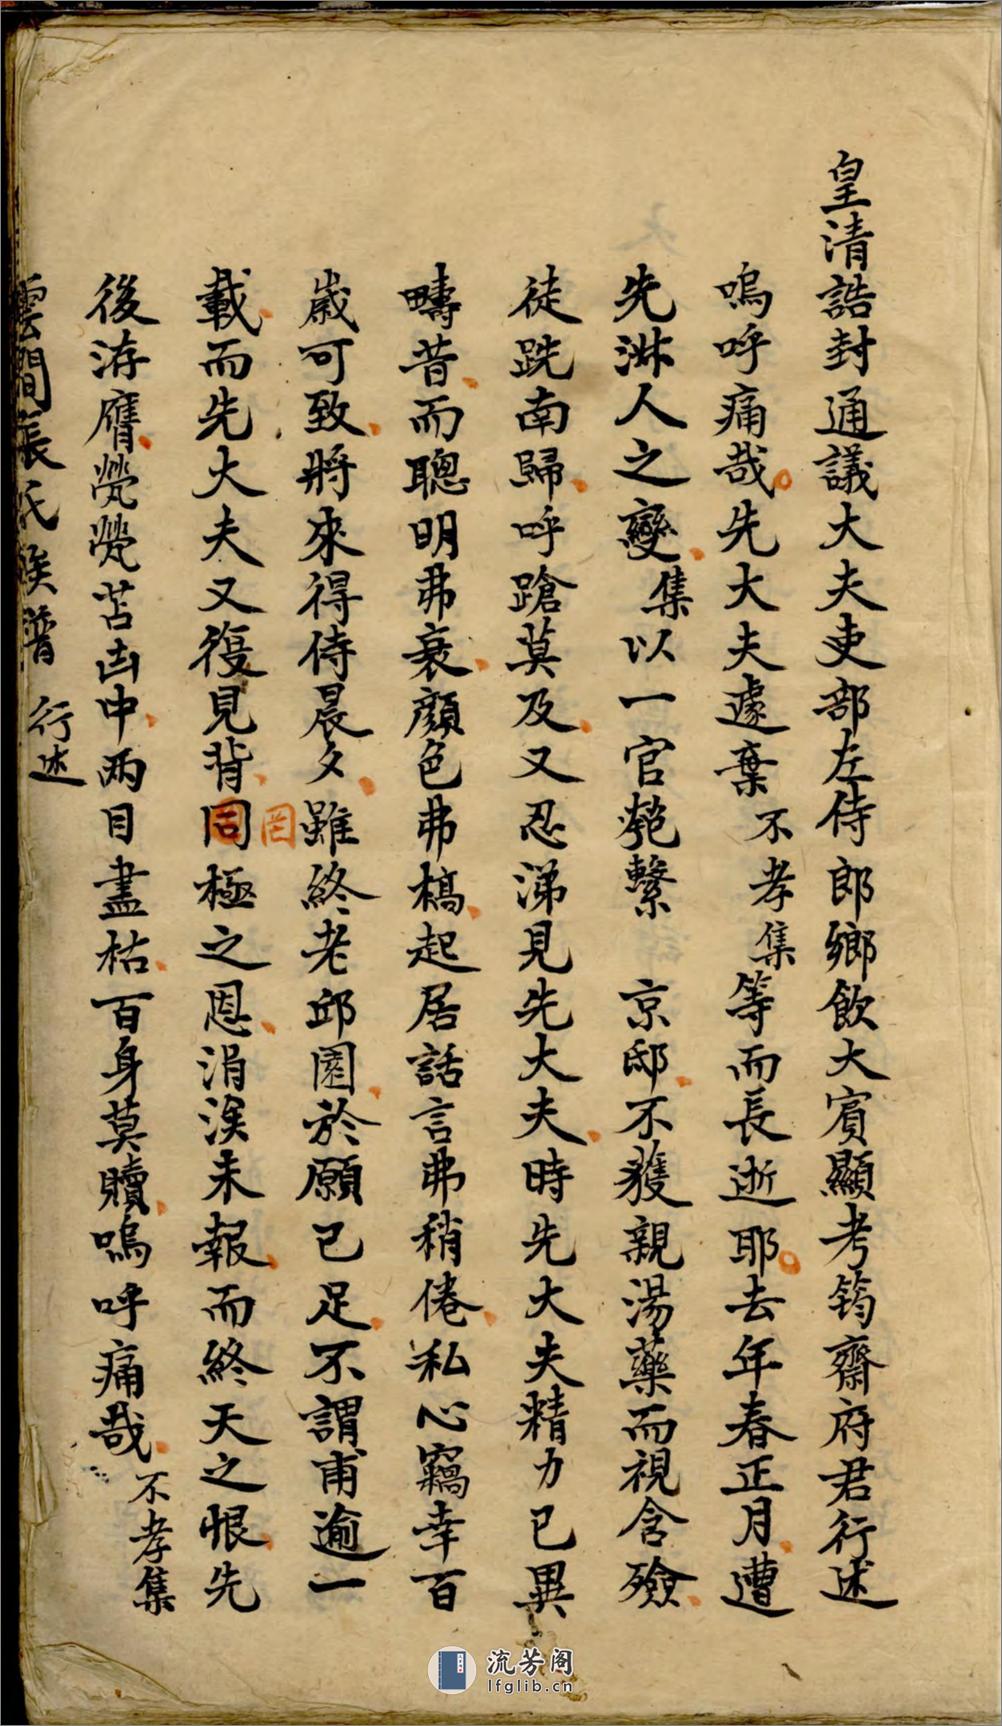 皇清誥封通議大夫吏部左侍郎鄉飲大賓顯考筠齋府君行述
嗚呼痛哉先大夫遽棄不孝集等而長逝耶去年春正月遭
先淋人之變集以一官匏繫 京邸不獲親湯藥而視含殮
徒跣南歸呼蹌莫及又忍涕見先大夫時先大夫精力已異
疇昔而聰明弗衰顏色弗槁起居話言弗稍倦私心竊幸百
歲可致將來得侍晨夕雖終老邱園於願已足不謂甫逾一
載而先大夫又復見背罔極之恩涓涘未報而終天之恨先
罔
後洊膺煢煢苫凷中兩目盡枯百身莫贖嗚呼痛哉不孝集
雲間張氏族譜 行述
流芳阁
lfglib.cn